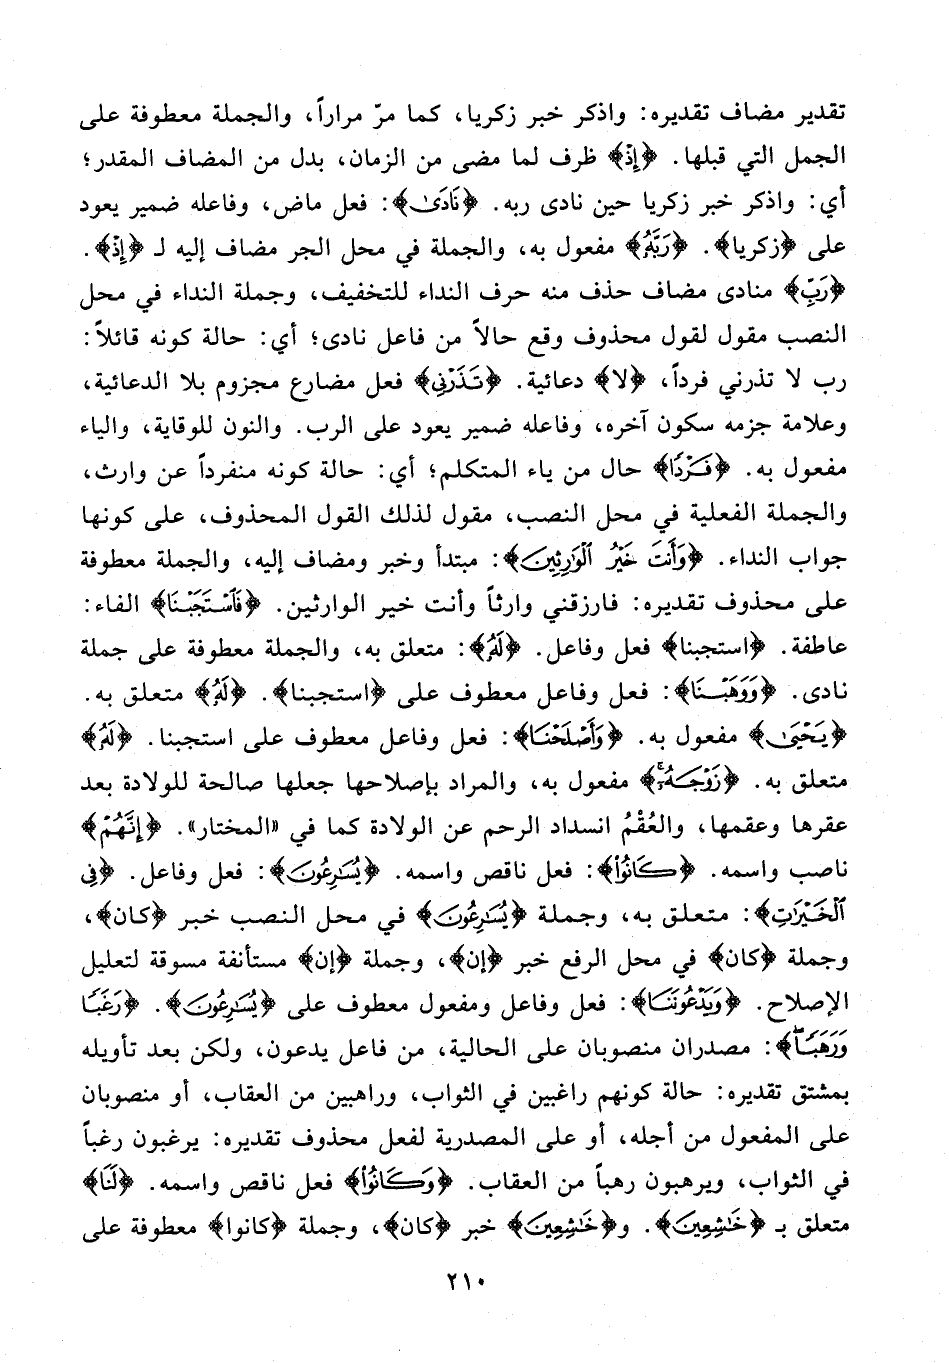 تقدير مضاف تقديره: واذكر خبر زكريا، كما مرّ مراراً، والجملة معطوفة على
الجمل التي قبلها. ﴿إِذْ﴾ ظرف لما مضى من الزمان، بدل من المضاف المقدر؛
أي: واذكر خبر زكريا حين نادى ربه. ﴿نَادَىٰ﴾: فعل ماض، وفاعله ضمير يعود
على ﴿زكريا﴾. ﴿رَبَّهُ﴾ مفعول به، والجملة في محل الجر مضاف إليه لـ ﴿إِذْ﴾.
﴿رَبِّ﴾ منادى مضاف حذف منه حرف النداء للتخفيف، وجملة النداء في محل
النصب مقول لقول محذوف وقع حالاً من فاعل نادى؛ أي: حالة كونه قائلاً:
رب لا تذرني فرداً، ﴿لا﴾ دعائية. ﴿تَذَرْنِي﴾ فعل مضارع مجزوم بلا الدعائية،
وعلامة جزمه سكون آخره، وفاعله ضمير يعود على الرب. والنون للوقاية، والياء
مفعول به. ﴿فَرْدًا﴾ حال من ياء المتكلم؛ أي: حالة كونه منفرداً عن وارث،
والجملة الفعلية في محل النصب، مقول لذلك القول المحذوف، على كونها
جواب النداء. ﴿وَأَنتَ خَيْرُ ٱلْوَٰرِثِينَ﴾: مبتدأ وخبر ومضاف إليه، والجملة معطوفة
على محذوف تقديره: فارزقني وارثاً وأنت خير الوارثين. ﴿فَٱسْتَجَبْنَا﴾ الفاء:
عاطفة. ﴿استجبنا﴾ فعل وفاعل. ﴿لَهُ﴾: متعلق به، والجملة معطوفة على جملة
نادى. ﴿وَوَهَبْنَا﴾: فعل وفاعل معطوف على ﴿استجبنا﴾. ﴿لَهُ﴾ متعلق به.
﴿يَحْيَىٰ﴾ مفعول به. ﴿وَأَصْلَحْنَا﴾: فعل وفاعل معطوف على استجبنا. ﴿لَهُ﴾
متعلق به. ﴿زَوْجَهُۥٓ﴾ مفعول به، والمراد بإصلاحها جعلها صالحة للولادة بعد
عقرها وعقمها، والعُقْمُ انسداد الرحم عن الولادة كما في «المختار». ﴿إِنَّهُمْ﴾
ناصب واسمه. ﴿كَانُوا۟﴾: فعل ناقص واسمه. ﴿يُسَٰرِعُونَ﴾: فعل وفاعل. ﴿فِي
ٱلْخَيْرَٰتِ﴾: متعلق به، وجملة ﴿يُسَٰرِعُونَ﴾ في محل النصب خبر ﴿كان﴾،
وجملة ﴿كان﴾ في محل الرفع خبر ﴿إن﴾، وجملة ﴿إن﴾ مستأنفة مسوقة لتعليل
الإصلاح. ﴿وَيَدْعُونَنَا﴾: فعل وفاعل ومفعول معطوف على ﴿يُسَٰرِعُونَ﴾. ﴿رَغَبًا
وَرَهَبًا﴾: مصدران منصوبان على الحالية، من فاعل يدعون، ولكن بعد تأويله
بمشتق تقديره: حالة كونهم راغبين في الثواب، وراهبين من العقاب، أو منصوبان
على المفعول من أجله، أو على المصدرية لفعل محذوف تقديره: يرغبون رغباً
في الثواب، ويرهبون رهباً من العقاب. ﴿وَكَانُوا۟﴾ فعل ناقص واسمه. ﴿لَنَا﴾
متعلق بـ ﴿خَٰشِعِينَ﴾. و﴿خَٰشِعِينَ﴾ خبر ﴿كان﴾، وجملة ﴿كانوا﴾ معطوفة على
٢١٠